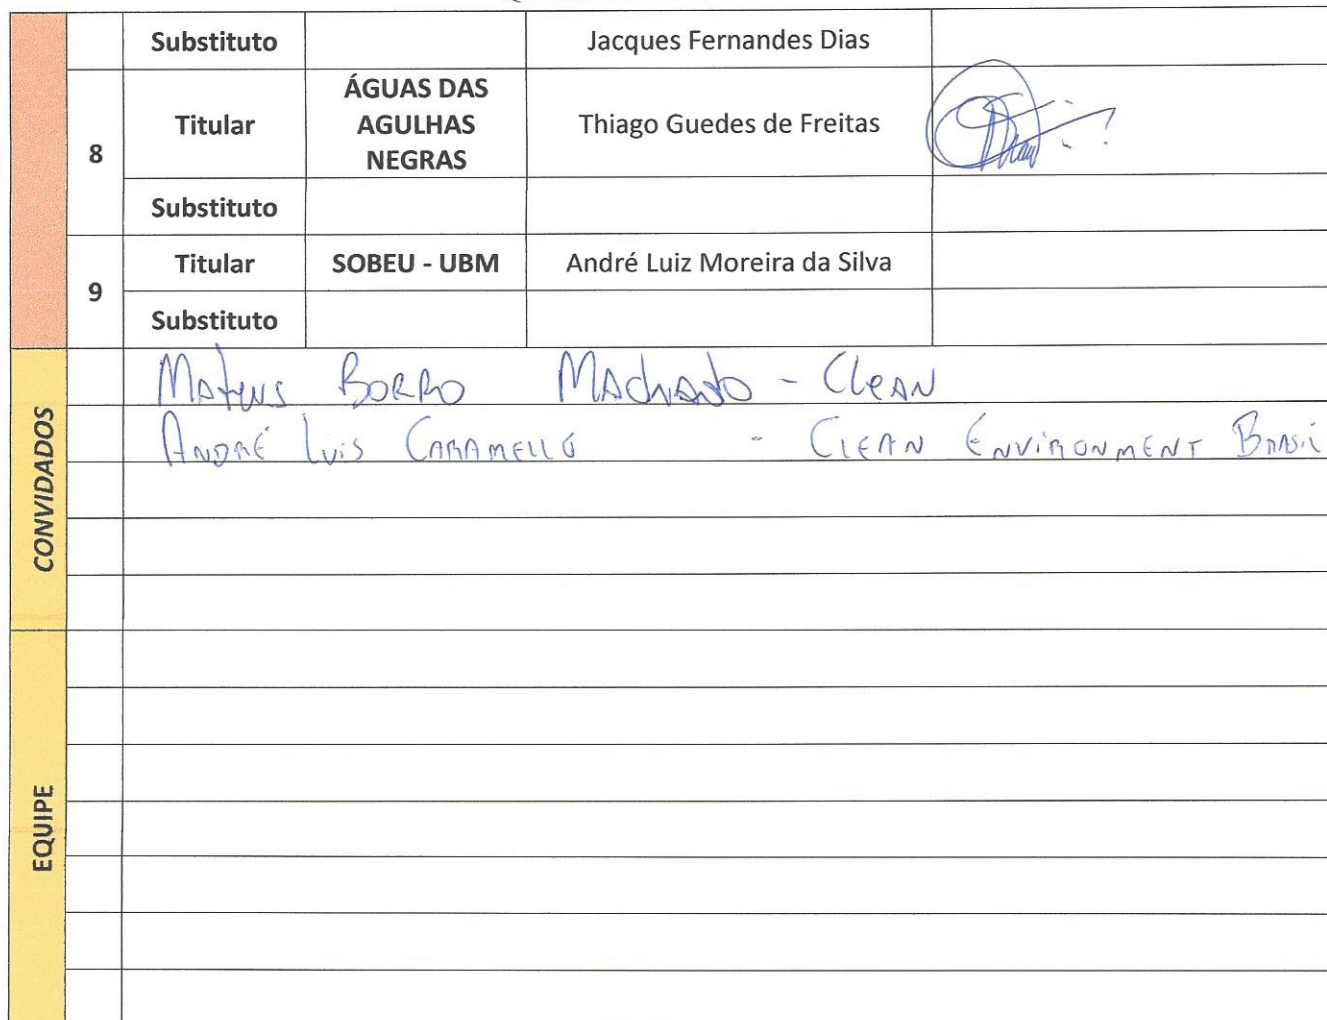 Substituto Jacques Fernandes Dias
8 Titular ÁGUAS DAS AGULHAS NEGRAS Thiago Guedes de Freitas
Substituto
9 Titular SOBEU - UBM André Luiz Moreira da Silva
Substituto
CONVIDADOS
Mateus Borro Machado - Clean
André Luis Caramello - Clean Environment Brasil
EQUIPE